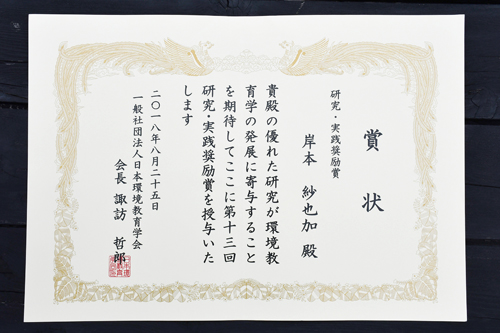 賞状
研究・実践奨励賞
岸本 紗也加 殿
貴殿の優れた研究が環境教
育学の発展に寄与すること
を期待してここに第十三回
研究・実践奨励賞を授与いた
します
二〇一八年八月二十五日
一般社団法人日本環境教育学会
会長 諏訪 哲郎